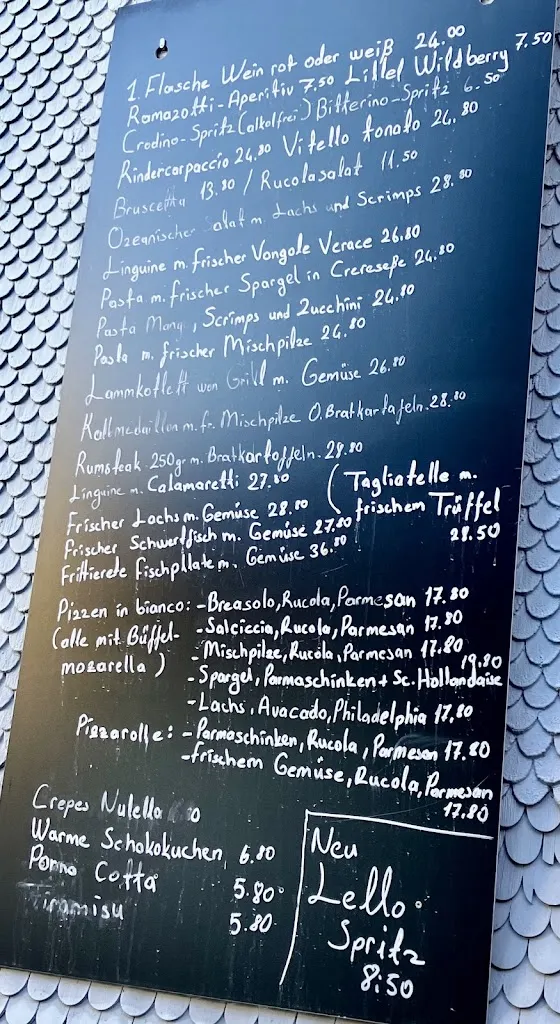 1. Flasche Wein rot oder weiß 24.00
Ramazotti-Aperitiv 7.50 Lillel Wildberry 7.50
Crodino-Spritz (alkolfrei) Bitterino-Spritz 6.50
Rindercarpaccio 24.80 Vitello tonato 24,80
Bruscetta 13.80 / Rucolasalat 11.50
Ozeanischer Salat m. Lachs und Scrimps 28.80
Linguine m. frischer Vongole Verace 26.80
Pasta m. frischer Spargel in Creresoße 24.80
Pasta Mang, Scrimps und Zucchini 24.80
Pasta m. frischer Mischpilze 24.80
Lammkotlett von Grill m. Gemüse 26.80
Kalbmedaillon m. fr. Mischpilze O. Bratkartafeln. 28.80
Rumsteak 250gr m. Bratkartoffeln. 29.80
Linguine m. Calamaretti 27.80
(Tagliatelle m.
frischem Trüffel
28.50
Frischer Lachs m. Gemüse 28.80
Frischer Schwertfisch m. Gemüse 27.80
Frittierete Fischpllate m. Gemüse 36.80
Pizzen in bianco: - Breasolo, Rucola, Parmesan 17.80
(alle mit Büffel- - Salciccia, Rucola, Parmesan 17.80
mozarella) - Mischpilze, Rucola, Parmesan 17.80
- Spargel, Parmaschinken + Sc. Hollandaise 19.80
- Lachs, Avacado, Philadelphia 17,80
Pizzarolle: - Parmaschinken, Rucola, Parmesan 17.80
- frischem Gemüse, Rucola, Parmesan
17.80
Crepes Nutella
Warme Schokokuchen 6.80
Panna Cotta 5.80
Tiramisu 5.80
Neu
Lello
Spritz
8:50